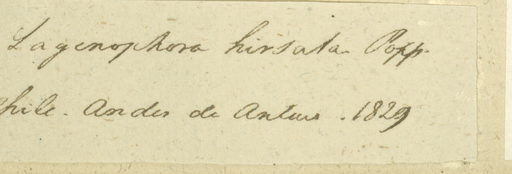 Lagenophora hirsuta Popp.
Chile. Andes de Antuco. 1829